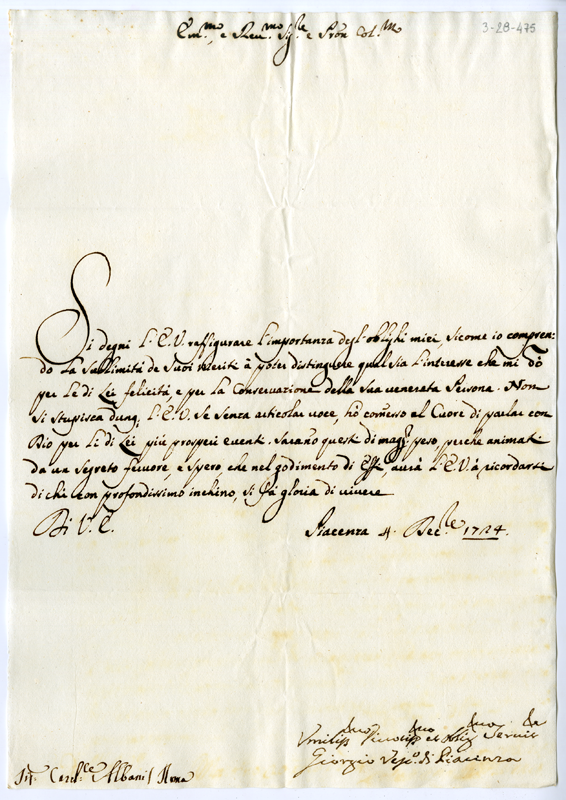 Em.mo e Reu.mo Sig.re e Pron Col.mo
3-28-475
Si degni l'E.V. raffigurare l'importanza degl'oblighi miei, sicome io compren=
do la Sublimità de Suoi meriti à poter distinguere qual sia l'interesse che mi dò
per le di Lei felicità, e per la Conservazione della Sua venerata Persona. Non
si stupisca dunq; l'E.V. se senza articolar voce, hò comesso al Cuore di parlar con
Dio per li di Lei più prosperi eventi. Saranno questi di magg.r peso, perche animati
da un segreto fervore, e spero, che nel godimento di Essi, aurà l'E.V. à ricordarsi
di chi con profondissimo inchino, si fà gloria di vivere
Di V.E.
Piacenza 4. Dec.re 1724.
Umiliss.mo Deuotiss.mo et Oblig.mo Seruit.re
Giorgio Vesc.o di Piacenza
Sig. Card.le Albani / Roma